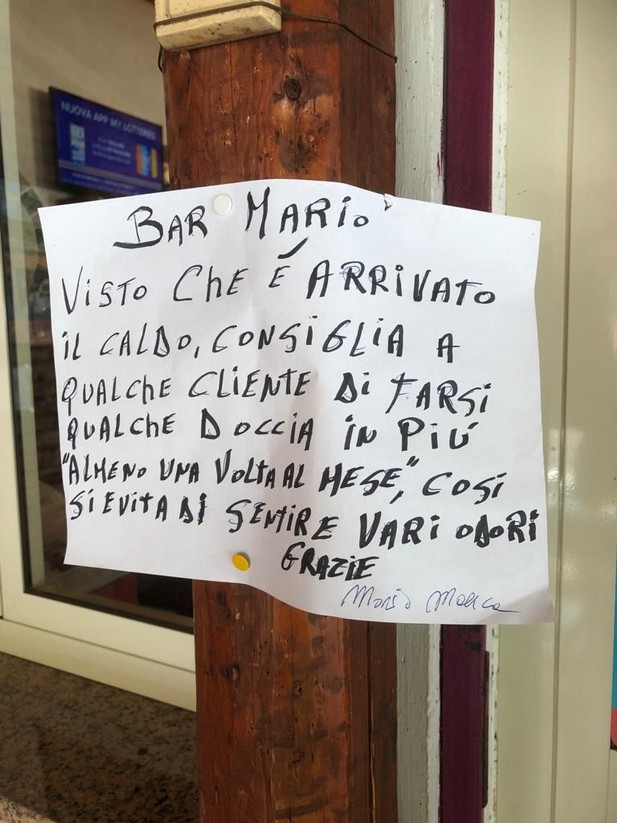 NUOVA APP MY LOTTERIES
BAR MARIO
VISTO CHE É ARRIVATO
IL CALDO, CONSIGLIA A
QUALCHE CLIENTE DI FARSI
QUALCHE DOCCIA IN PIÚ
"ALMENO UNA VOLTA AL MESE", COSI
SI EVITA DI SENTIRE VARI ODORI
GRAZIE